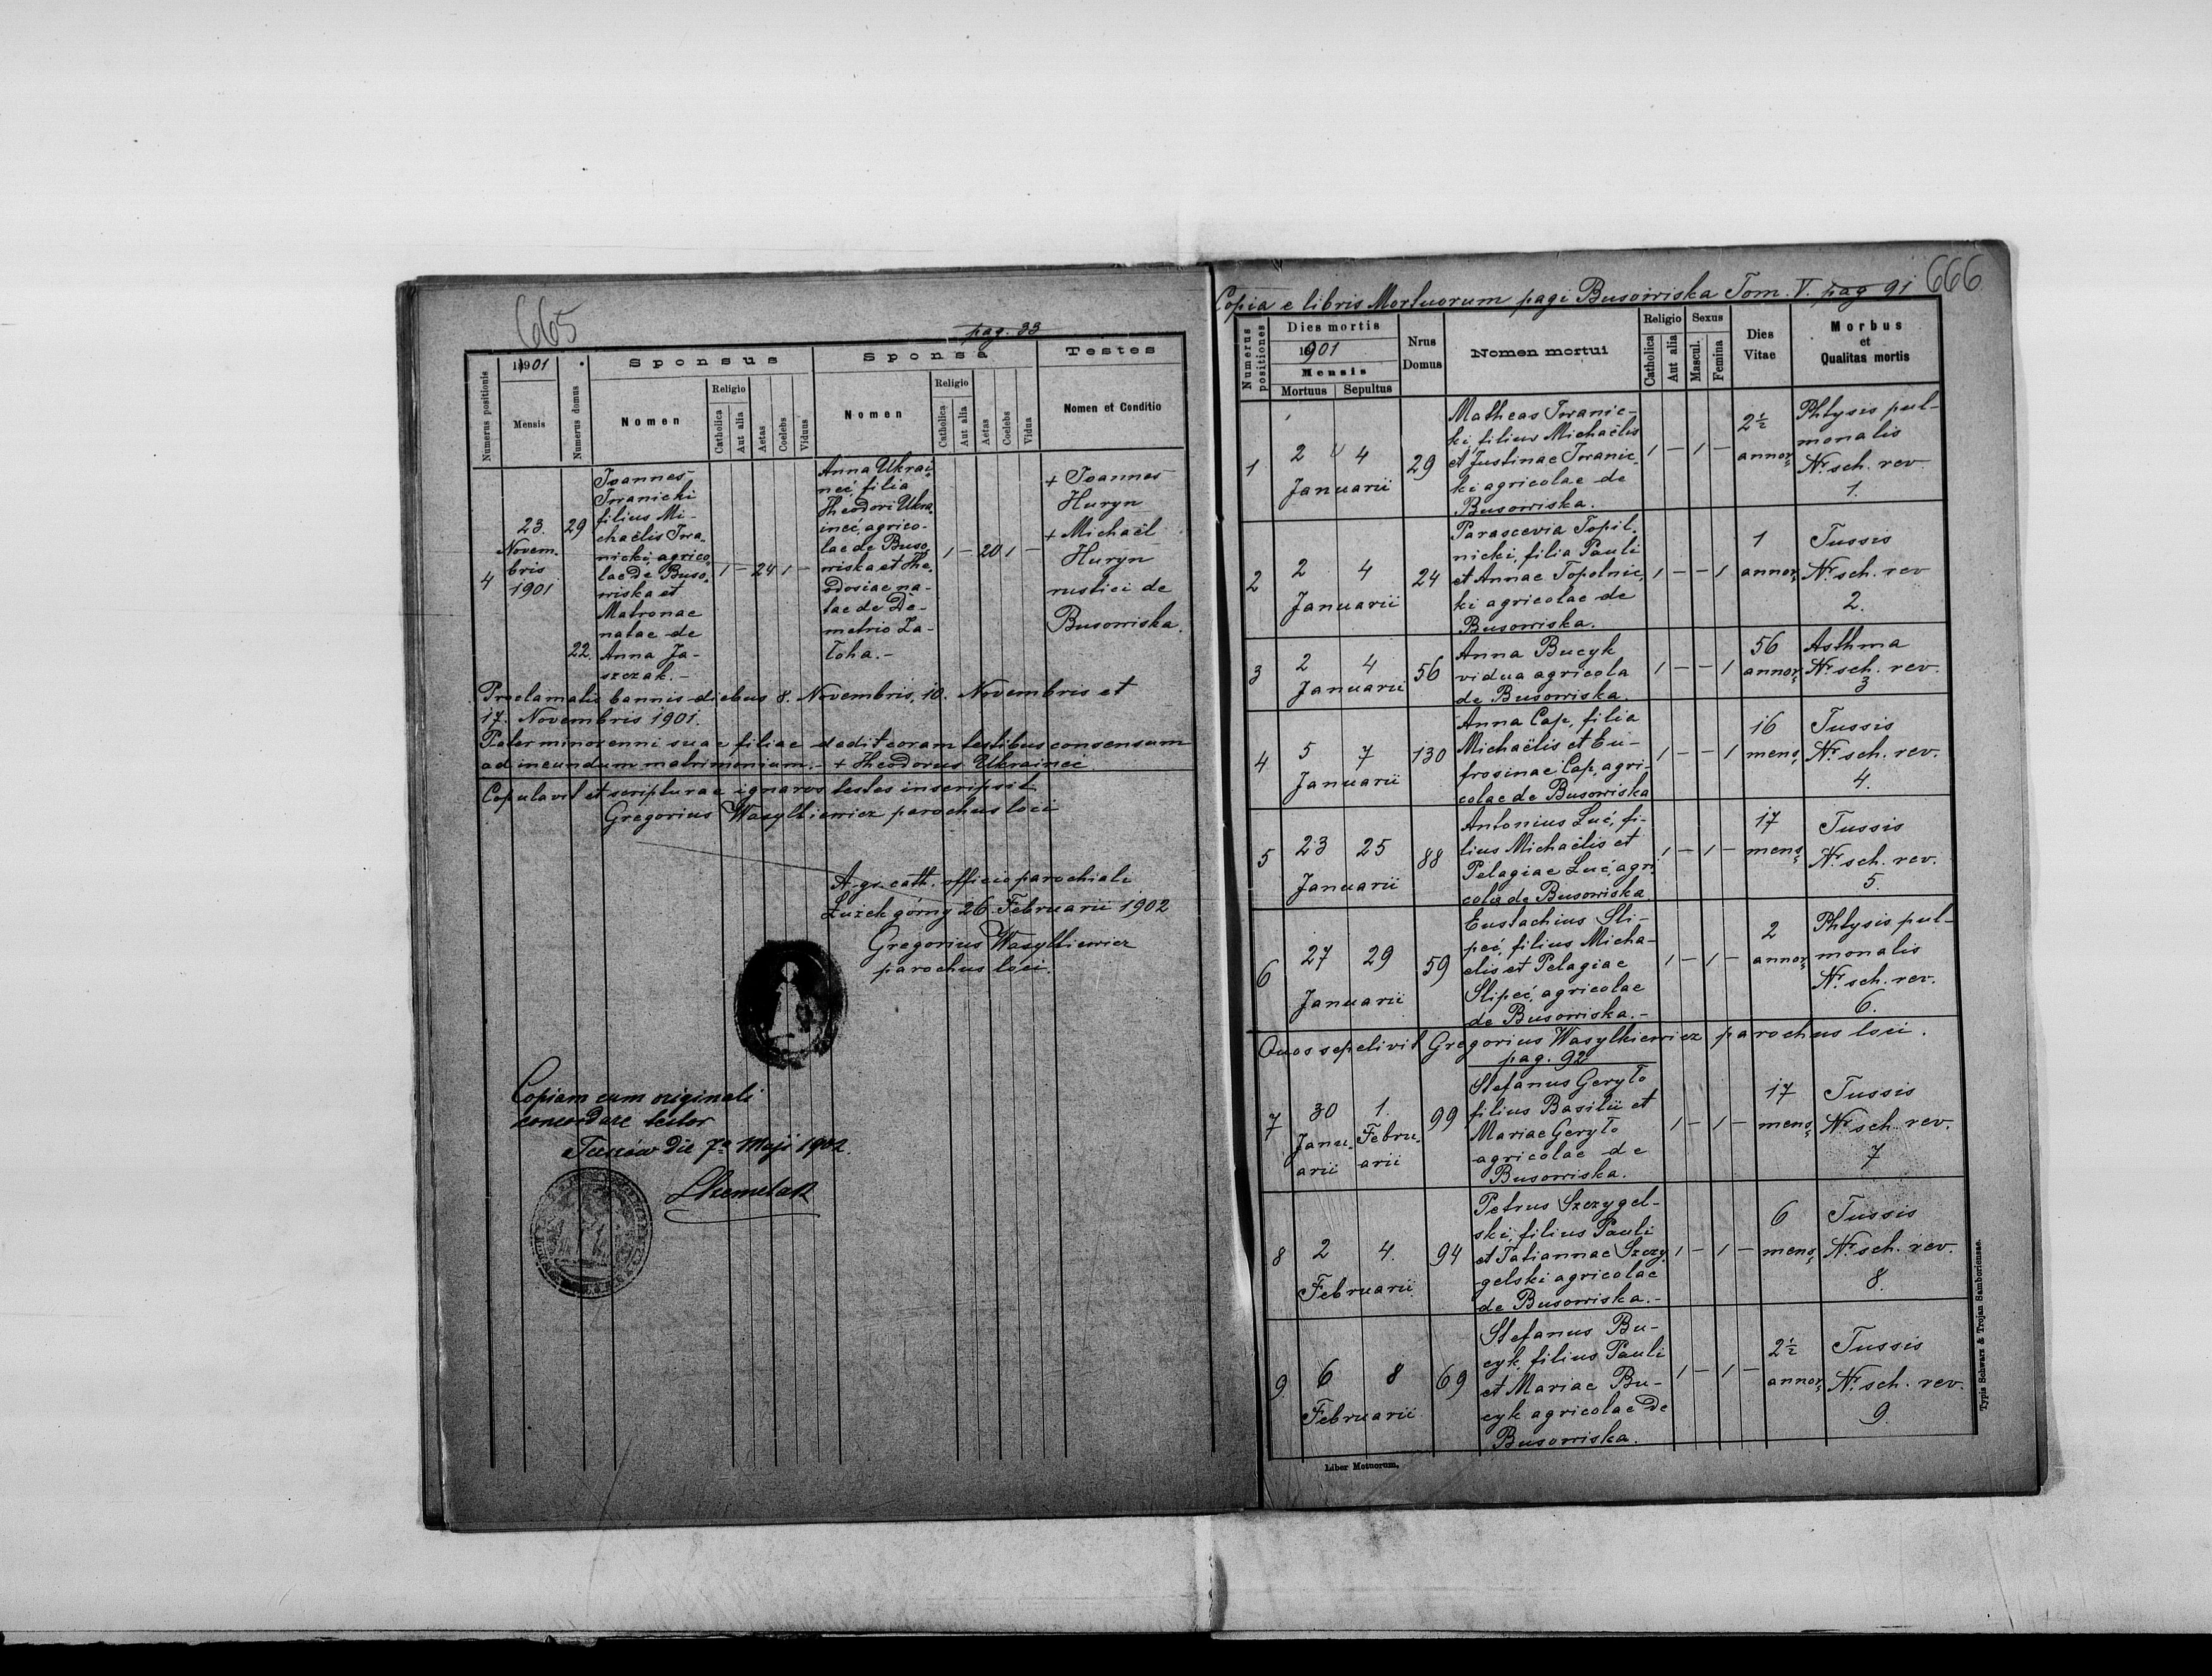 665
pag. 33
Numerus positionis
1901
Mensis
Numerus domus
Sponsus
Nomen
Religio
Catholica
Aut alia
Aetas
Coelebs
Viduus
Sponsa
Nomen
Religio
Catholica
Aut alia
Aetas
Coelebs
Vidua
Testes
Nomen et Conditio
4
23.
Novem-
bris
1901
29
22.
Joannes
Iwanicki
filius Mi-
chaëlis Iwa-
nicki, agrico-
lae de Buso-
wiska et
Matronae
natae de
Anna Ja-
szczak.-
1 - 24 1 -
Anna Ukrai-
neć, filia
Theodori Ukra-
ineć, agrico-
lae de Buso-
wiska et The-
odosiae na-
tae de De-
metrio Za-
łoha.-
1 - 20 1 -
+ Joannes
Huryn
+ Michaël
Huryn
rustici de
Busowiska.
Proclamatis bannis diebus 8. Novembris, 10. Novembris et
17. Novembris 1901.
Pater minorenni suae filiae dedit coram testibus consensum
ad ineundum matrimonium.- + Theodorus Ukraineć
Copulavit et scripturae ignaros testes inscripsit
Gregorius Wasylkiewicz parochus loci
A gr. cath. officio parochiali
Łużek górny 26. Februarii 1902
Gregorius Wasylkiewicz
parochus loci.
Copiam cum originali
concordare testor
die 7a Maji 1902.
666
Copia e libris Mortuorum pagi Busowiska Tom. V. pag 91
Numerus positiones
Dies mortis
1901
Mensis
Mortuus
Sepultus
Nrus
Domus
Nomen mortui
Religio
Catholica
Aut alia
Sexus
Mascul.
Femina
Dies
Vitae
Morbus
et
Qualitas mortis
1
2 4
Januarii
29
Matheas Iwanic-
ki, filius Michaëlis
et Justinae Iwanic-
ki agricolae de
Busowiska.
1 - 1 -
2½
annor.
Phtysis pul-
monalis
Nr. sch. rev.
1.
2
2 4
Januarii
24
Parascevia Topil-
nicki, filia Pauli
et Annae Topolnic-
ki agricolae de
Busowiska.
1 - - 1
1
annor.
Tussis
Nr. sch. rev
2.
3
2 4
Januarii
56
Anna Bucyk
vidua agricola
de Busowiska.
1 - - 1
56
annor.
Asthma
Nr. sch. rev.
3
4
5 7
Januarii
130
Anna Cap, filia
Michaëlis et Eu-
frosinae Cap, agri-
colae de Busowiska
1 - - 1
16
mens.
Tussis
Nr. sch. rev.
4.
5
23 25
Januarii
88
Antonius Luć, fi-
lius Michaëlis et
Pelagiae Luć, agri-
colae de Busowiska
1 - 1 -
17
mens.
Tussis
Nr. sch. rev.
5.
6
27 29
Januarii
59
Eustachius Sli-
peć, filius Micha-
elis et Pelagiae
Slipeć, agricolae
de Busowiska.-
1 - 1 -
2
annor.
Phtysis pul-
monalis
Nr. sch. rev.
6.
Quos sepelivit Gregorius Wasylkiewicz parochus loci.
pag. 92
7
30
Janu-
arii
1.
Febru-
arii
99
Stefanus Geryło
filius Basilii et
Mariae Geryło
agricolae de
Busowiska.
1 - 1 -
17
mens.
Tussis
Nr. sch. rev.
7
8
2 4.
Februarii
94
Petrus Szczygel-
ski, filius Pauli
et Tatiannae Szczy-
gelski agricolae
de Busowiska.-
1 - 1 -
6
mens.
Tussis
Nr. sch. rev.
8.
9
6 8
Februarii
69
Stefanus Bu-
cyk, filius Pauli
et Mariae Bu-
cyk agricolae de
Busowiska.
1 - 1 -
2½
annor.
Tussis
Nr. sch. rev.
9.
Liber Motuorum.
Typis Schwarz & Trojan Samboriensae.